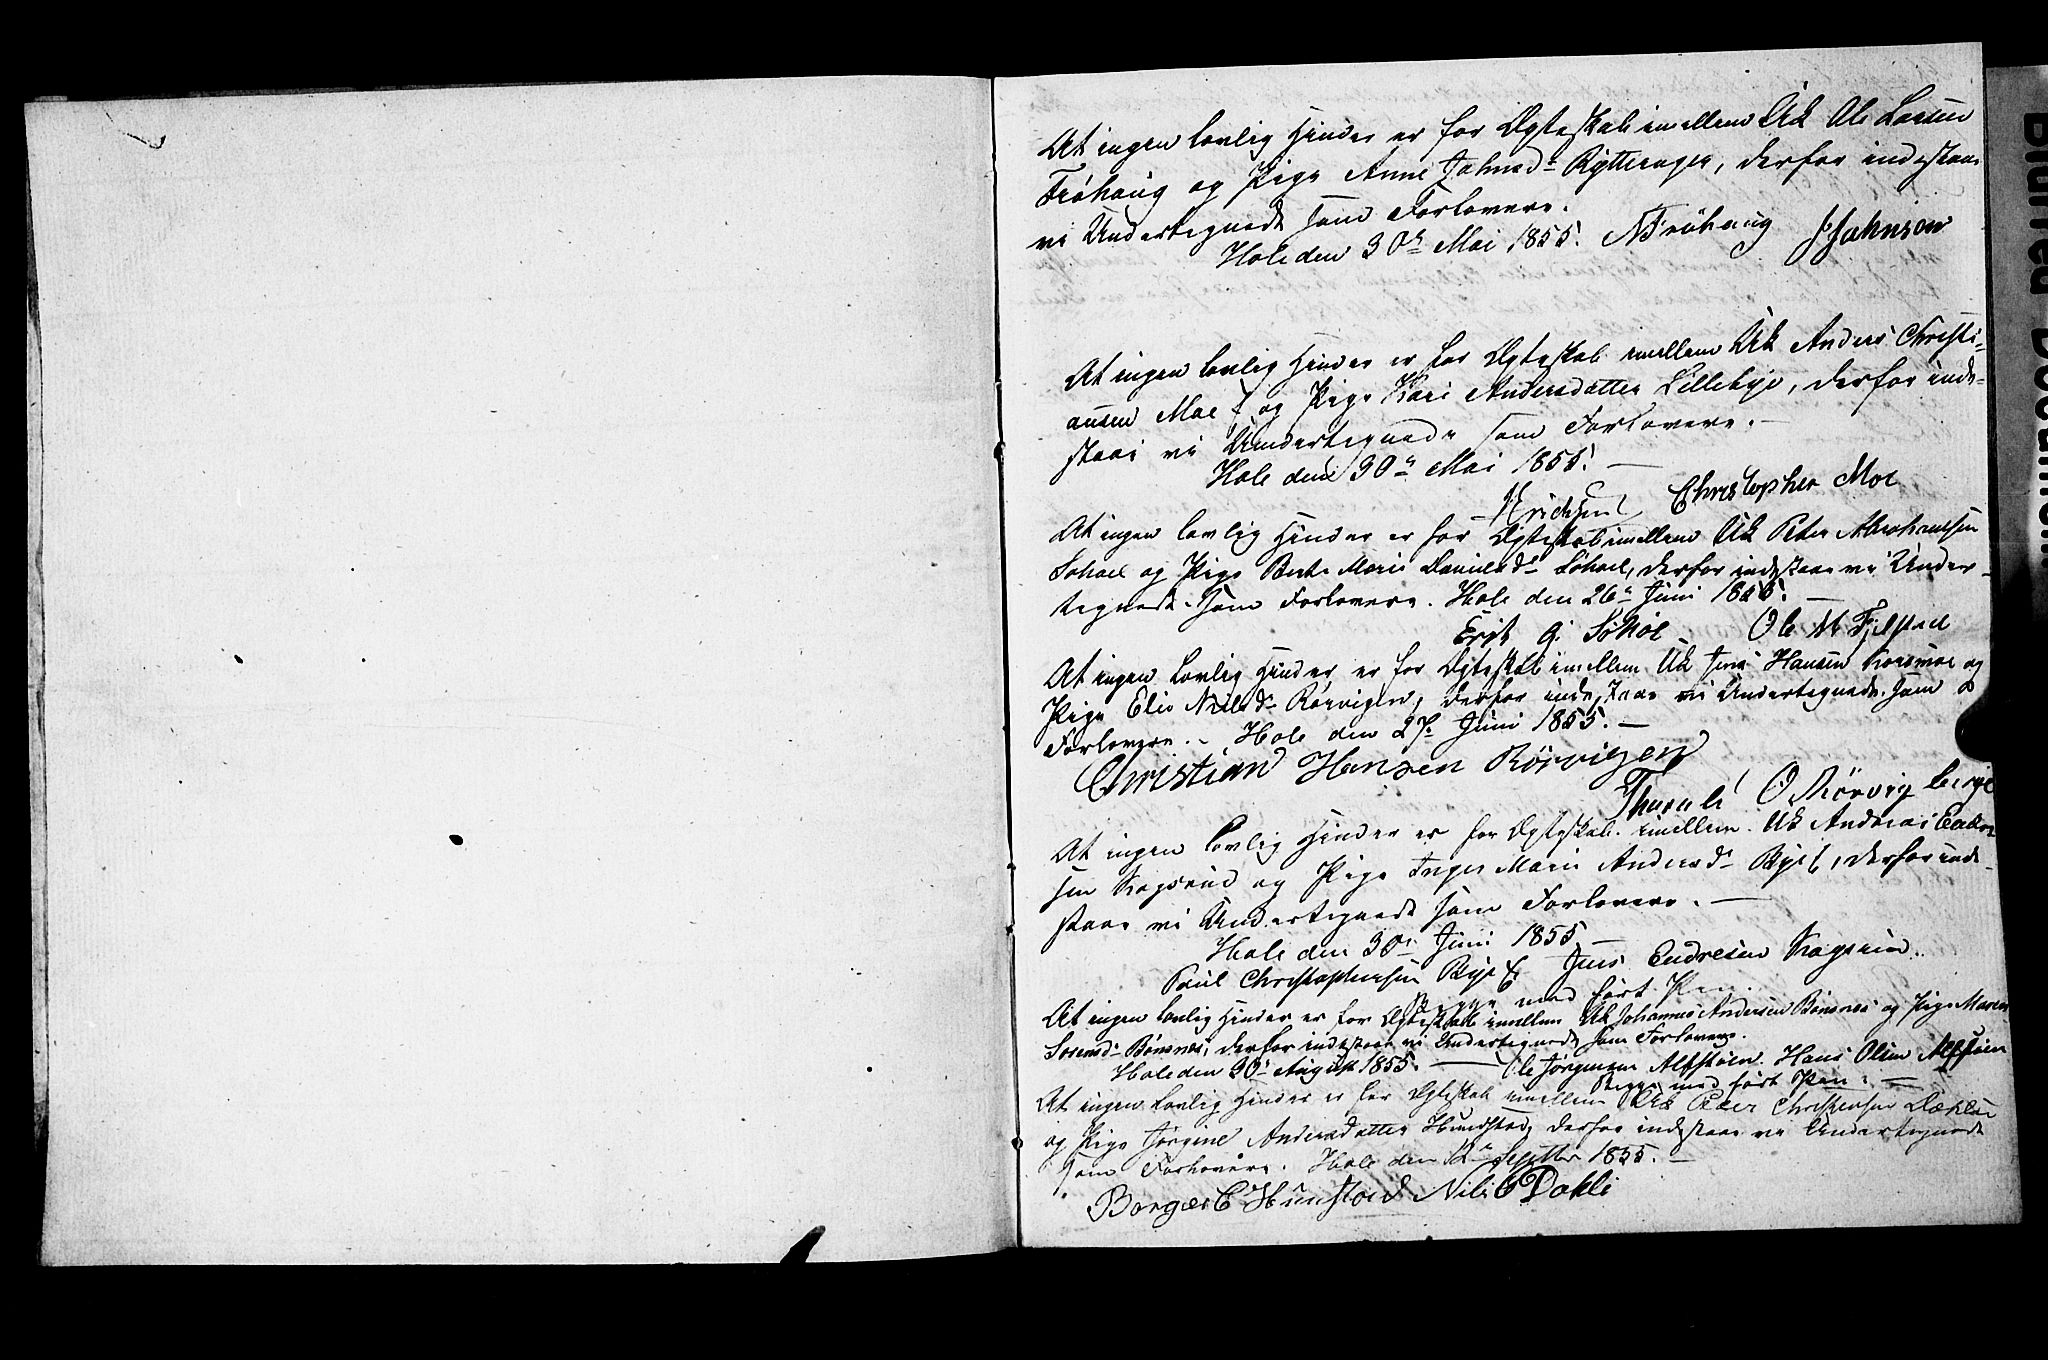 At ingen lovlig Hinder er for Ægteskab imellem Uk Ole Larsen
Frøhaug og Pige Anne Johnsd. Rytterager, derfor indestaae
vi Undertegnede som Forlovere.
Hole den 30te Mai 1855. N Frøhaug J Johnsen
At ingen lovlig Hinder er for Ægteskab imellem Uk Anders Christi-
ansen Moe og Pige Kari Andersdatter Lillebye, derfor inde-
staae vi Undertegnede som Forlovere. —
Hole den 30te Mai 1855. —
Erichsen Christopher Moe
At ingen lovlig Hinder er for Ægteskab imellem Uk Peter Abrahamsen
Søhoel og Pige Berte Marie Danielsd. Søhoel, derfor indestaae vi Under-
tegnede som Forlovere. Hole den 26de Juni 1855. —
Erik G. Søhoel Ole M Fjelstad
At ingen lovlig Hinder er for Ægteskab imellem Uk Jens Hansen Korsmoe og
Pige Elis Nilsd. Rørvigen, derfor indestaae vi Undertegnede som
Forlovere. – Hole den 27de Juni 1855. —
Christian Hansen Rørvigen
O Rørvig berge
At ingen lovlig Hinder er for Ægteskab imellem Uk Andreas Endre-
sen Kagsrud og Pige Inger Marie Andersd. Bye, derfor inde-
staae vi Undertegnede som Forlovere. —
Hole den 30te Juni 1855 —
Paul Christophersen Bye Jens Endresen Kagsrud.
Begge med ført Pen.
At ingen lovlig Hinder er for Ægteskab imellem Uk Johannes Andersen Bønsnes og Pige Maren
Sørensd. Bønsnes, derfor indestaae vi Undertegnede som Forlovere.
Hole den 30te August 1855. — Ole Jørgensen Alfstøen. Hans Olsen Alfstøen
Begge med ført Pen. —
At ingen lovlig Hinder er for Ægteskab imellem Uk Peder Christensen Dæklie
og Pige Jørgine Andersdatter Hundstad, derfor indestaae vi Undertegnede
som Forlovere. Hole den 12te Septbr 1855. —
Borger C Hunstad Nils Dahli